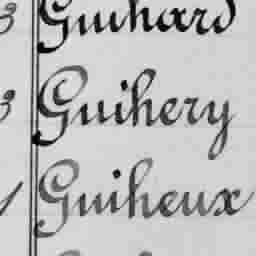 3 Guihard
3 Guihery
1 Guiheux